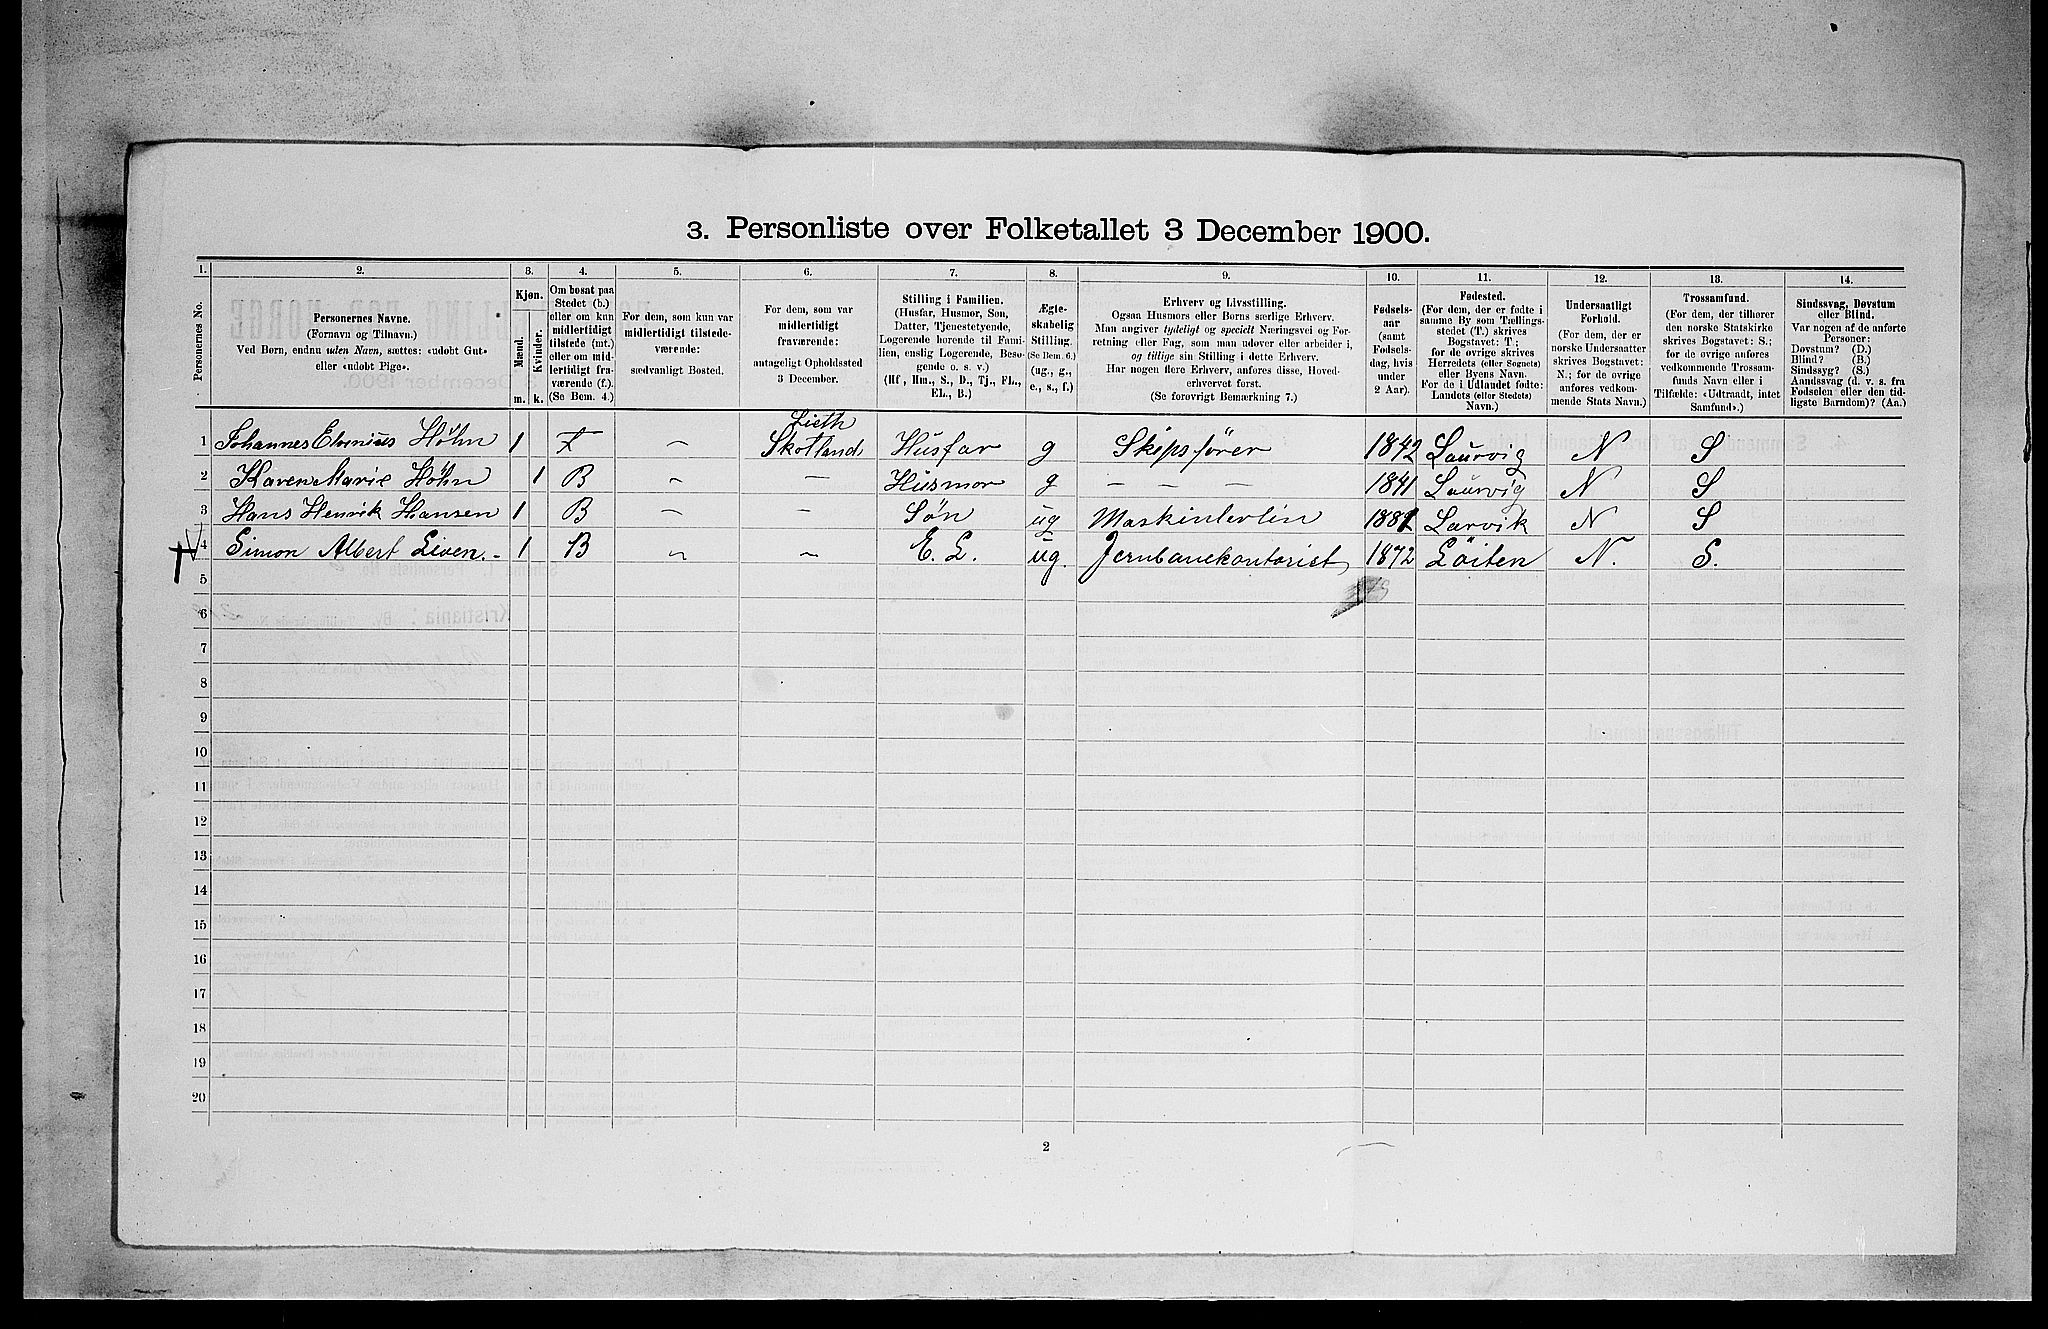 3. Personliste over Folketallet 3 December 1900.
1. 2. 3. 4. 5. 6. 7. 8. 9. 10. 11. 12. 13. 14.
Personernes No.
Personernes Navne.
(Fornavn og Tilnavn.)
Ved Børn, endnu uden Navn, sættes: «udøbt Gut»
eller «udøbt Pige».
Kjøn.
Mænd.
Kvinder.
m. k.
Om bosat paa
Stedet (b.)
eller om kun
midlertidigt
tilstede (mt.)
eller om mid-
lertidigt fra-
værende (f.).
(Se Bem. 4.)
For dem, som kun var
midlertidigt tilstede-
værende:
sædvanligt Bosted.
For dem, som var
midlertidigt
fraværende:
antageligt Opholdssted
3 December.
Stilling i Familien.
(Husfar, Husmor, Søn,
Datter, Tjenestetyende,
Logerende hørende til Fami-
lien, enslig Logerende, Besø-
gende o. s. v.)
(Hf, Hm., S., D., Tj., FL.,
EL., B.)
Ægte-
skabelig
Stilling.
(Se Bem. 6.)
(ug., g.,
e., s., f.)
Erhverv og Livsstilling.
Ogsaa Husmors eller Børns særlige Erhverv.
Man angiver tydeligt og specielt Næringsvei og For-
retning eller Fag, som man udøver eller arbeider i,
og tillige sin Stilling i dette Erhverv.
Har nogen flere Erhverv, anføres disse, Hoved-
erhvervet først.
(Se forøvrigt Bemærkning 7.)
Fødsels-
aar
(samt
Fødsels-
dag, hvis
under
2 Aar).
Fødested.
(For dem, der er fødte i
samme By som Tællings-
stedet (T.) skrives
Bogstavet: T;
for de øvrige skrives
Herredets (eller Sognets)
eller Byens Navn.
For de i Udlandet fødte:
Landets (eller Stedets)
Navn.)
Undersaatligt
Forhold.
(For dem, der er
norske Undersaatter
skrives Bogstavet:
N.; for de øvrige
anføres vedkom-
mende Stats Navn.)
Trossamfund.
(For dem, der tilhører
den norske Statskirke
skrives Bogstavet: S.;
for de øvrige anføres
vedkommende Trossam-
funds Navn eller i
Tilfælde: «Udtraadt, intet
Samfund».)
Sindssvag, Døvstum
eller Blind.
Var nogen af de anførte
Personer:
Døvstum? (D.)
Blind? (B.)
Sindssyg? (S.)
Aandssvag (d. v. s. fra
Fødselen eller den tid-
ligste Barndom)? (Aa.)
Lieth
1 Johannes Elvenius Höhn 1 F – Skotland Husfar g Skipsförer 1842 Laurvig N S
2 Karen Marie Höhn 1 B – – Husmor g – – – 1841 Laurvig N S
3 Hans Henrik Hansen 1 B – – Søn ug 1881 Larvik N S
4 Simon Albert Liven. - 1 B – – E. L. ug. Jernbanekontorist 1872 Löiten N. S.
5
6
7
8
9
10
11
12
13
14
15
16
17
18
19
20
2